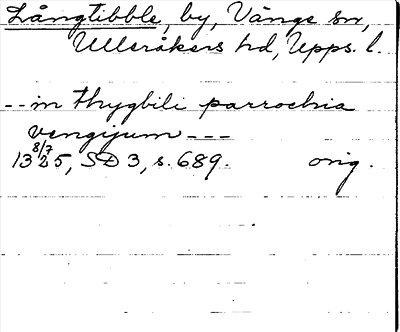 Långtibble, by, Vänge sn,
Ulleråkers hd, Upps. l.
-- in thygbili parrochia
vengijum ---
8/7
1325, SD 3, s. 689. orig.